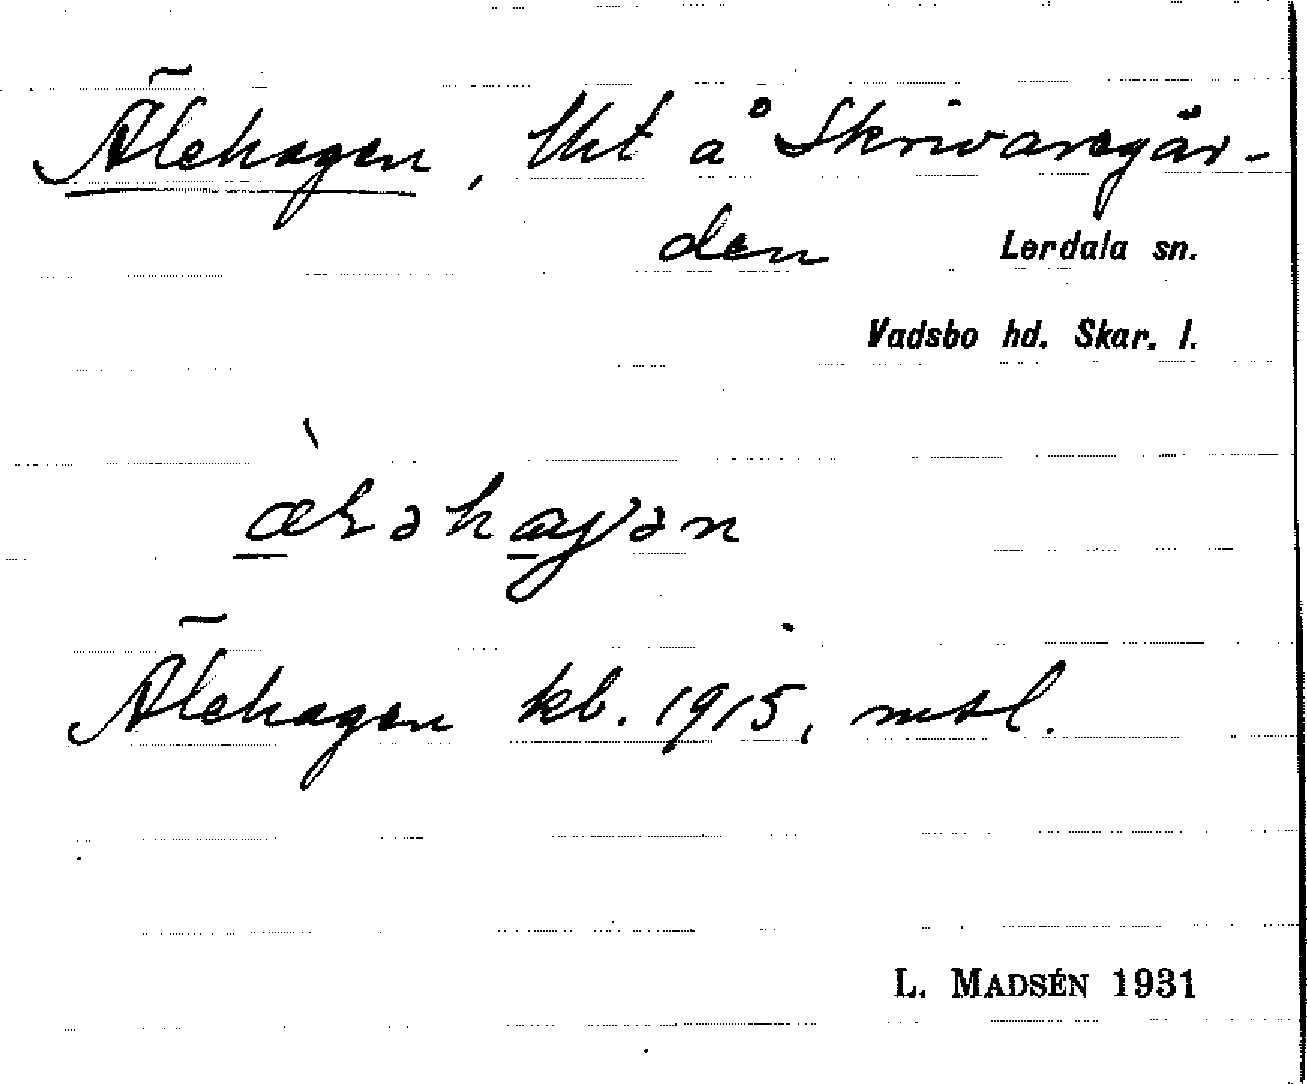 Älehagen, lht å Skrivaregår-
den
Lerdala sn.
Vadsbo hd. Skar. l.
Älehagen kb. 1915, mtl.
L. MADSÉN 1931